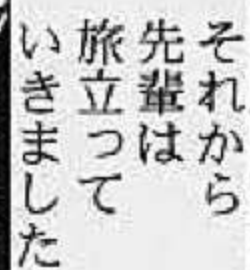 それから
先輩は
旅立って
いきました